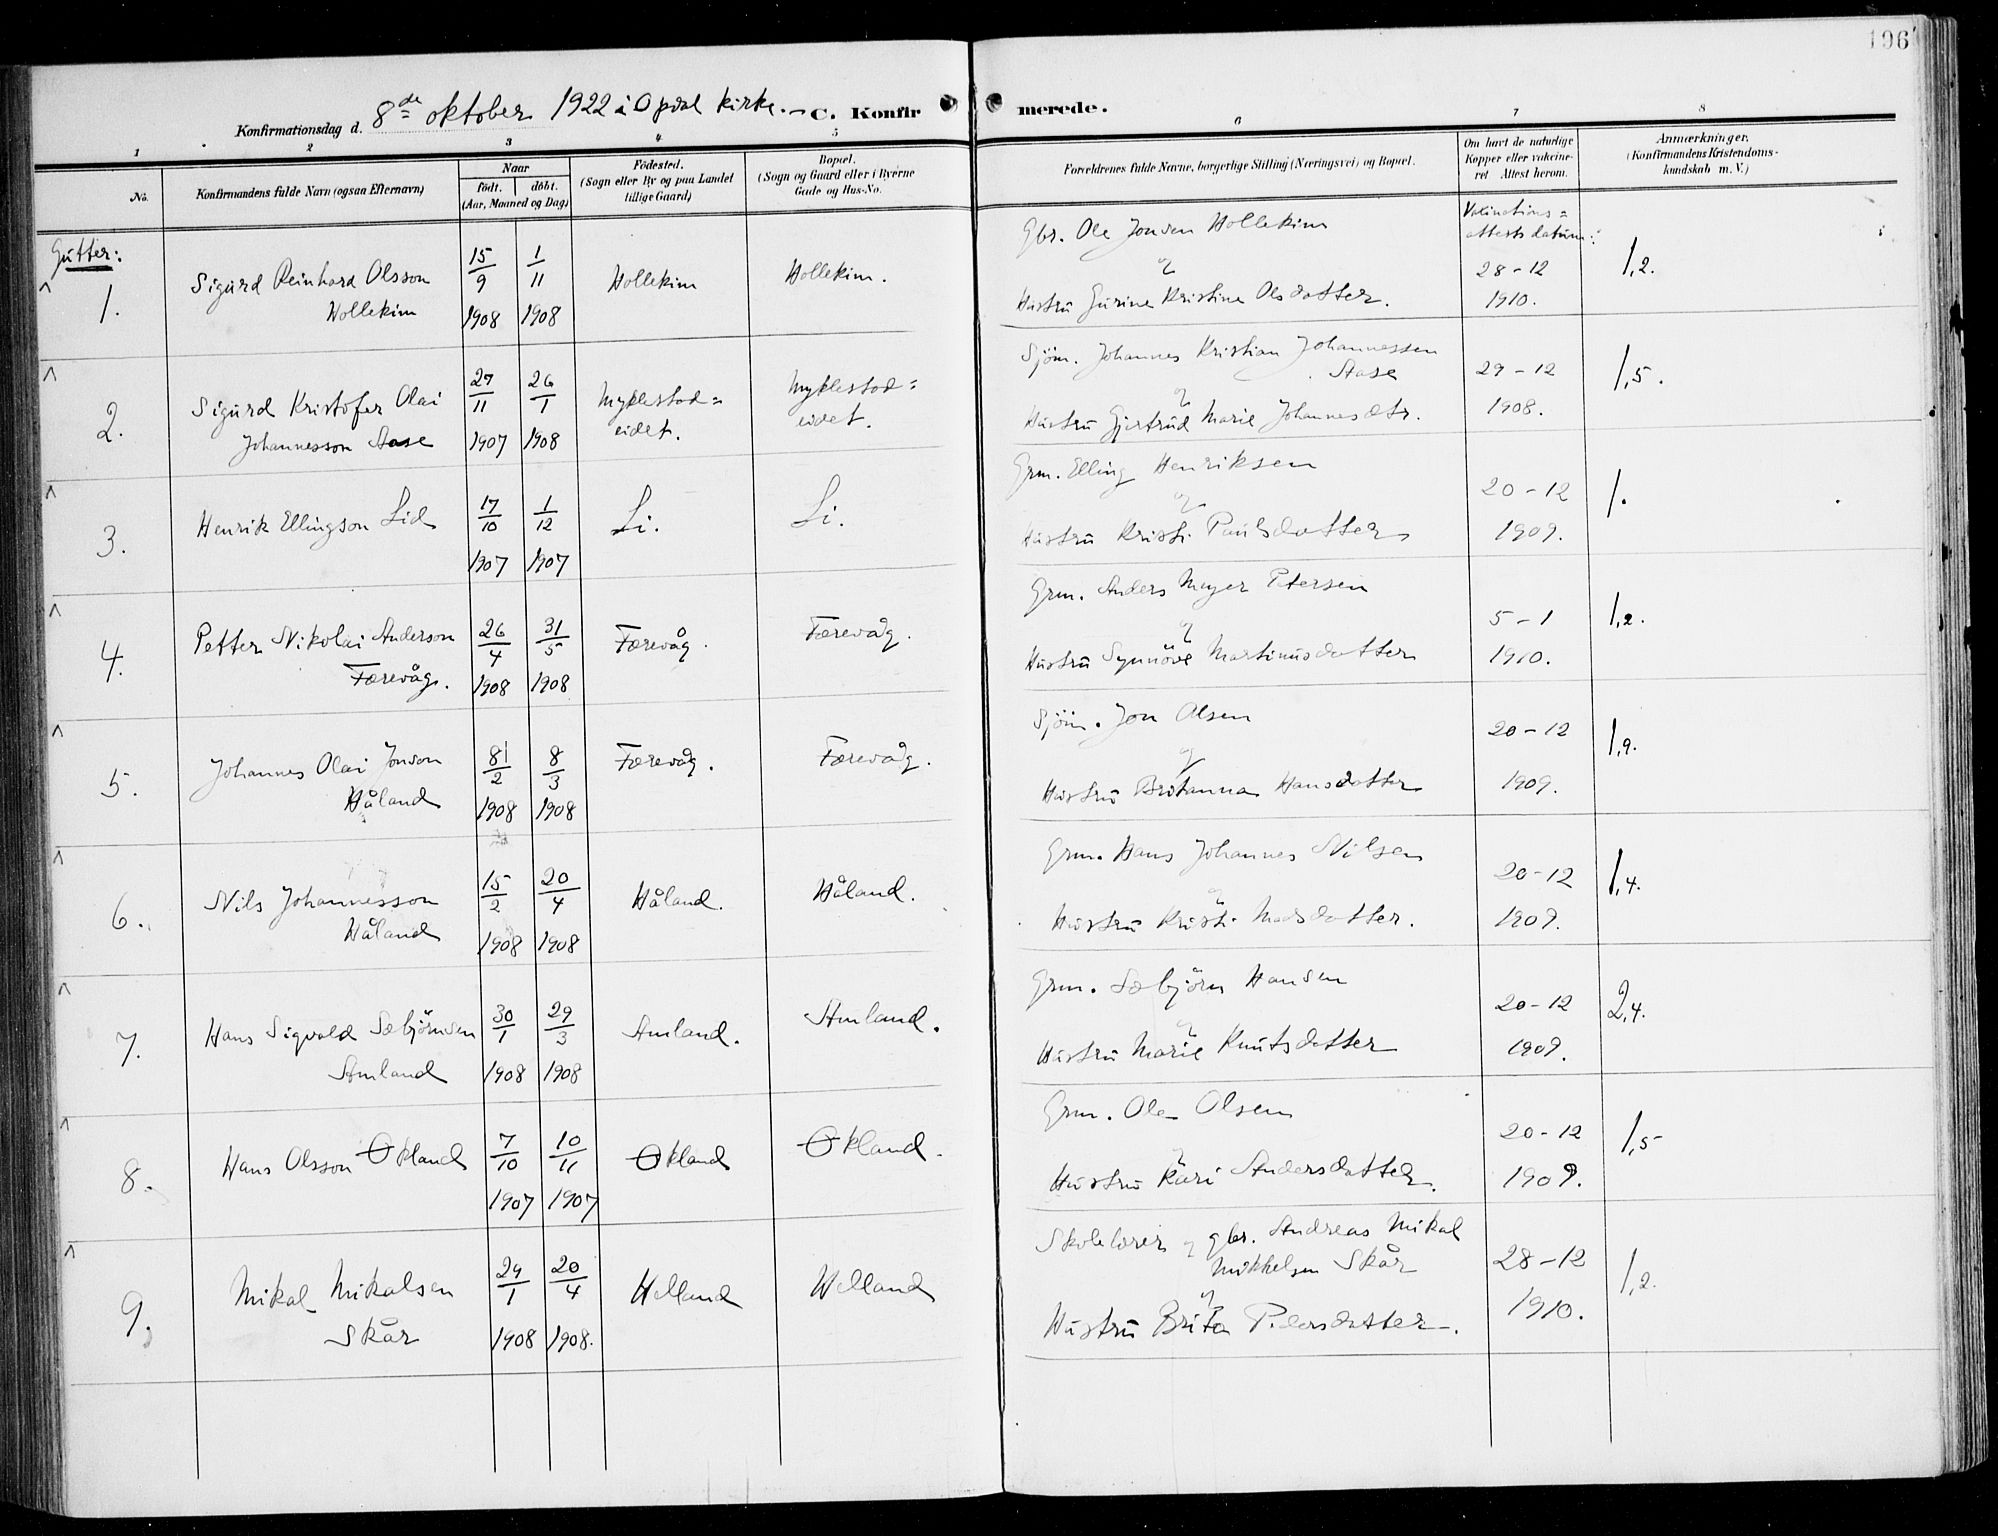 196
Konfirmationsdag d. 8de oktober 1922 i Opdal kirke. – C. Konfirmerede.
1 2 3 4 5 6 7 8
No.
Konfirmandens fulde Navn (ogsaa Efternavn)
Naar
født. døbt.
(Aar, Maaned og Dag)
Fødested.
(Sogn eller By og paa Landet
tillige Gaard)
Bopæl.
(Sogn og Gaard eller i Byerne
Gade og Hus-No.
Forældrenes fulde Navne, borgerlige Stilling (Næringsvei) og Bopæl.
Om havt de naturlige
Kopper eller vakcine-
ret Attest herom.
Anmærkninger.
(Konfirmandens Kristendoms-
kundskab m. V.)
Gutter:
Vakinations=
attests datum:
1. Sigurd Reinhard Olsson
Hollekim
15/9 1908
1/11 1908
Hollekim
Hollekim.
Gbr. Ole Jonsen Hollekim
og
Hustru Gurine Kristine Olsdatter.
28-12
1910.
1,2.
2. Sigurd Kristofer Olai
Johannesson Aase
27/11 1907
26/1 1908
Myklestad=
eidet.
Myklestad=
eidet.
Sjöm. Johannes Kristian Johannessen
Aase
og
Hustru Gjertrud Marie Johannesdtr.
29-12
1908.
1,5.
3. Henrik Ellingson Lid
17/10 1907
1/12 1907
Li.
Li.
Grm. Elling Henriksen
og
Hustru Kristi Paulsdatter
20-12
1909.
1.
4. Petter Nikolai Anderson
Færevåg.
26/4 1908
31/5 1908
Færevåg.
Færevåg.
Grm. Anders Meyer Petersen
og
Hustru Synnöve Martinusdatter
5-1
1910.
1,2.
5. Johannes Olai Jonson
Håland
/2 1908
8/3 1908
Færevåg.
Færevåg.
Sjöm. Jon Olsen
og
Hustru Britanna Hansdatter
20-12
1909.
1,9.
6. Nils Johannesson
Håland
15/2 1908
20/4 1908
Håland.
Håland.
Grm. Hans Johannes Nilsen
og
Hustru Kristi Madsdatter.
20-12
1909.
1,4.
7. Hans Sigvald Sæbjörnsen
Amland
30/1 1908
29/3 1908
Amland.
Amland.
Grm. Sæbjörn Hansen
og
Hustru Marie Knutsdatter
20-12
1909.
2,4.
8. Hans Olsson Økland
7/10 1907
10/11 1907
Økland
Økland.
Grm. Ole Olsen
og
Hustru Kari Andersdatter.
20-12
1909.
1,5
9. Mikal Mikalsen
Skår
29/1 1908
20/4 1908.
Helland
Helland
Skolelærer og gbr. Andreas Mikal
Mikkelsen Skår
og
Hustru Brita Pedersdatter.
28-12
1910.
1,2.